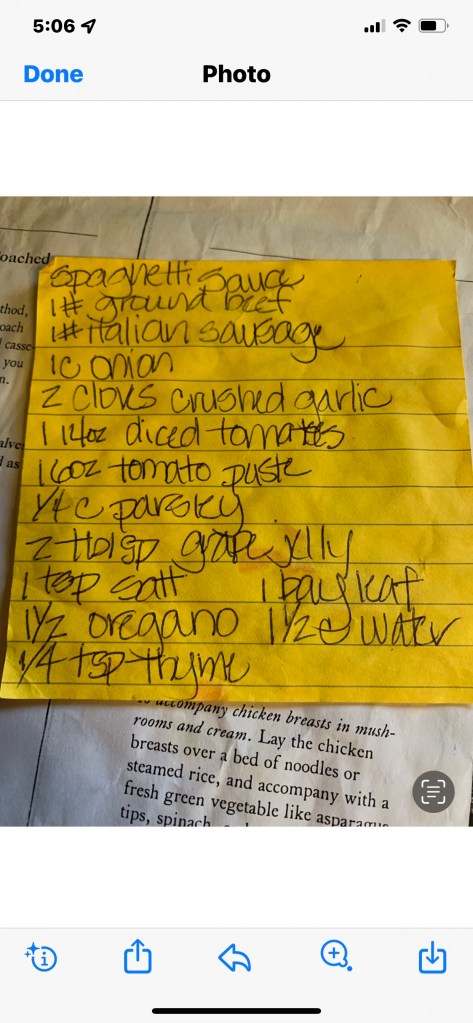 5:06
Done Photo
oached
Spaghetti Sauce
thod,
1# ground beef
oach
1# italian sausage
casse-
you
1c onion
n.
2 cloves crushed garlic
alve
1 14oz diced tomatoes
d as
1 6oz tomato paste
1/4 c parsley
2 tblsp grape jelly
1 tsp salt 1 bay leaf
1 1/2 oregano 1 1/2 c water
1/4 tsp thyme
to accompany chicken breasts in mush-
rooms and cream. Lay the chicken
breasts over a bed of noodles or
steamed rice, and accompany with a
fresh green vegetable like asparagus
tips, spinach